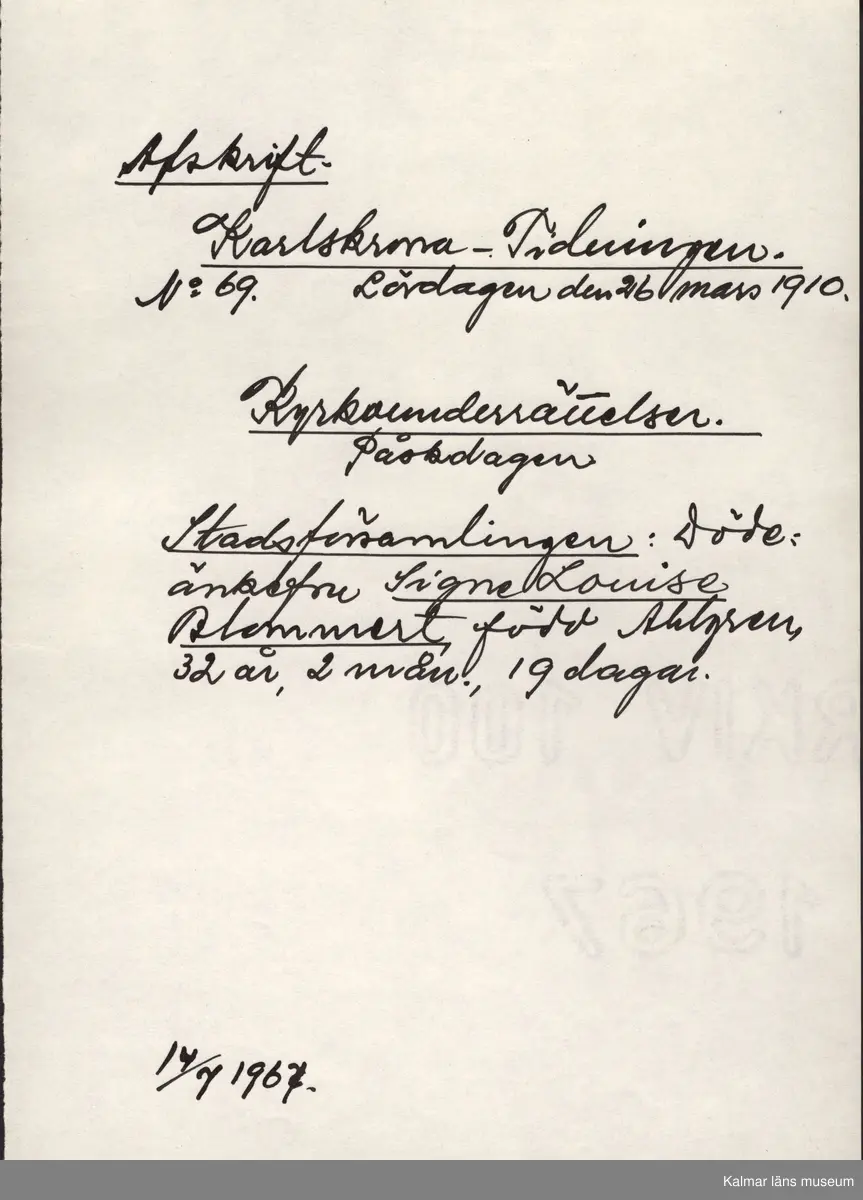 Afskrift.
Karlskrona-Tidningen.
No 69. Lördagen den 26 mars 1910.
Kyrkounderrättelser.
Påskdagen
Stadsförsamlingen: Döde:
änkefru Signe Louise
Blommert, född Ahlgren,
32 år, 2 mån., 19 dagar.
ARKIV 100
1967
14/7 1967.
Kalmar läns museum